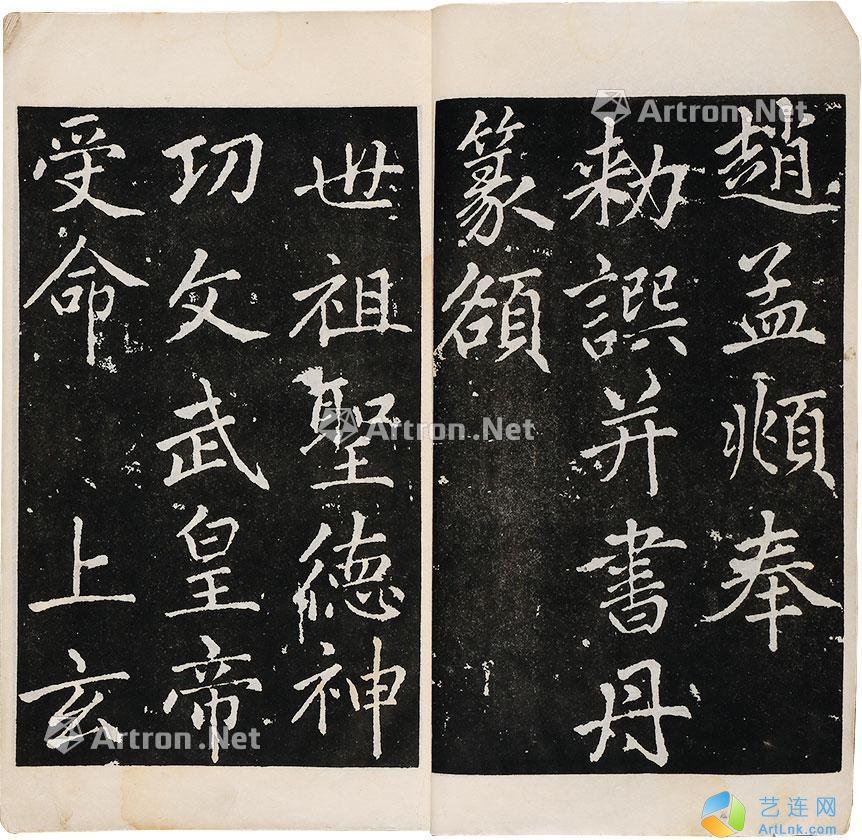 趙孟頫奉
勑譔并書丹
篆額
世祖聖德神
功文武皇帝
受命 上玄
Artron.Net
Artron.Net
Artron.Net
Artron.Net
Artron.Net
艺连网
ArtLnk.com